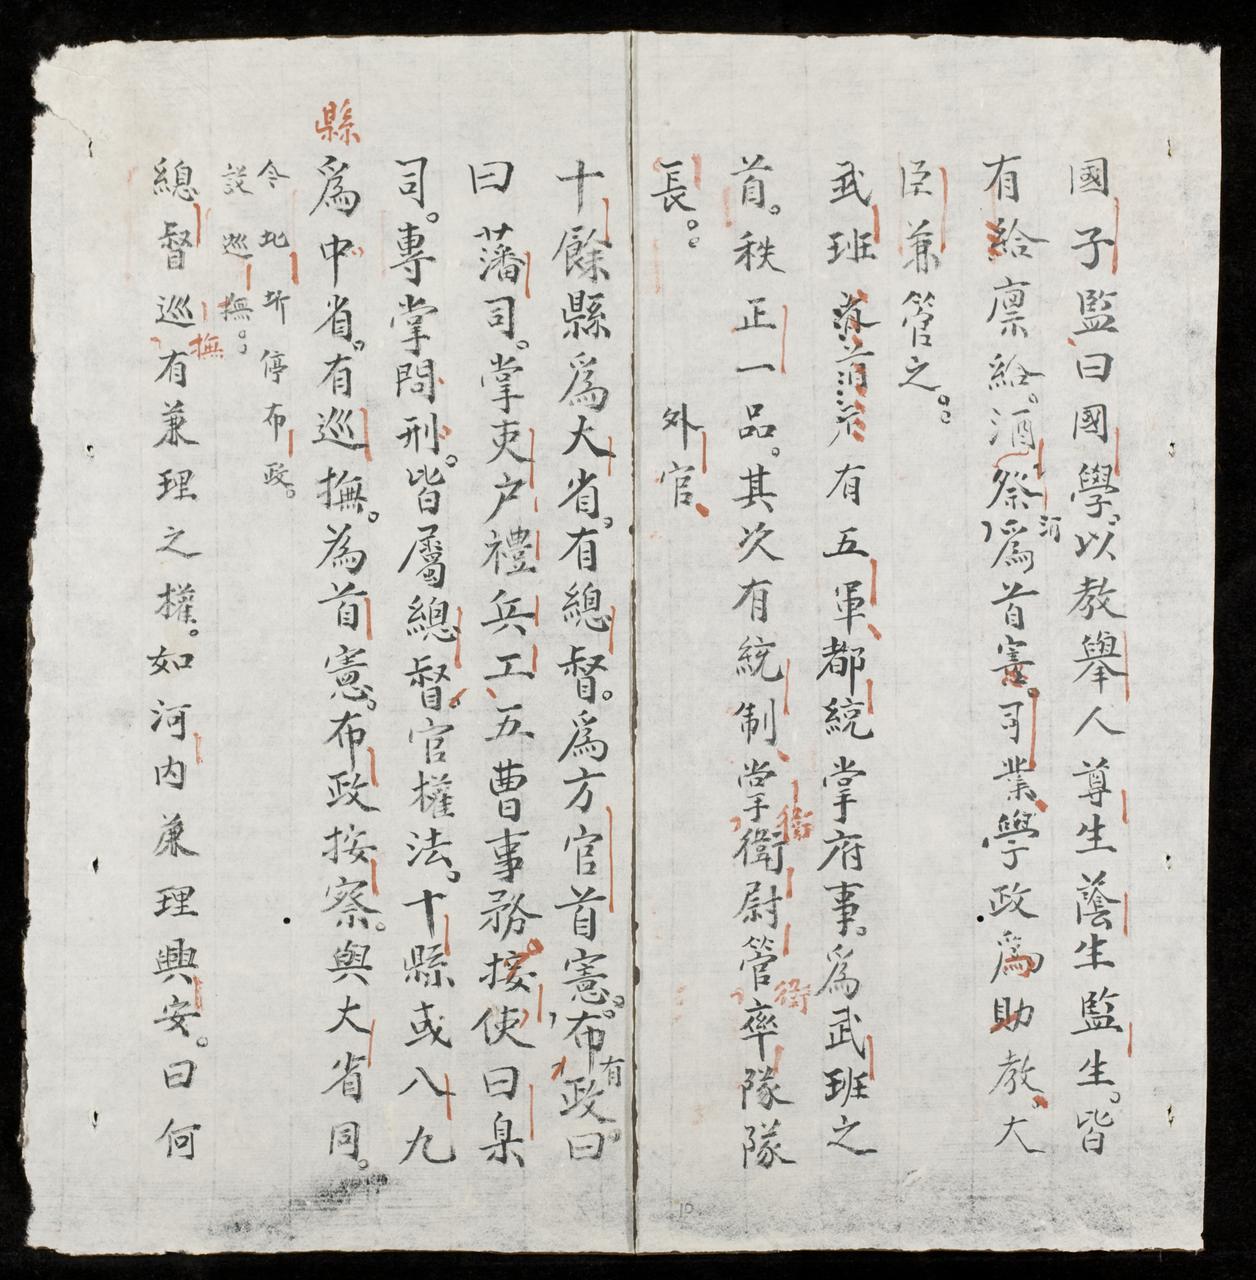 國子監曰國學。以教舉人尊生蔭生監生。皆
有給廩給。酒祭酒爲首憲。司業學政爲助教。大
臣兼管之。
武班首有五軍都統掌府事。爲武班之
首。秩正一品。其次有統制掌衛衛尉管率衛隊隊
長。
外官
十餘縣爲大省。有總督。爲方官首憲。有布政。曰
曰藩司。掌吏户禮兵工五曹事務。按使曰臬
司。專掌問刑。皆屬總督。官權法。十縣或八九
縣
爲中省。有巡撫。為首憲。布政按察。與大省同。
今北圻停布政。
設巡撫。
總督巡撫有兼理之權。如河内兼理興安。曰何